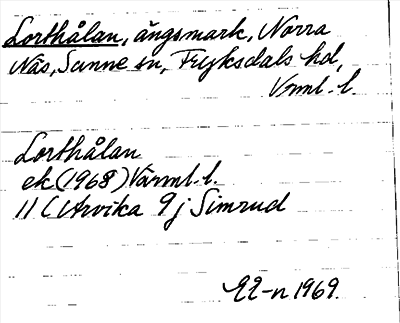 Lorthålan, ängsmark, Norra
Näs, Sunne sn, Fryksdals hd,
Vrml. l.
Lorthålan
ek (1968) Värml. l.
11 C Arvika 9 j Simrud
1969.